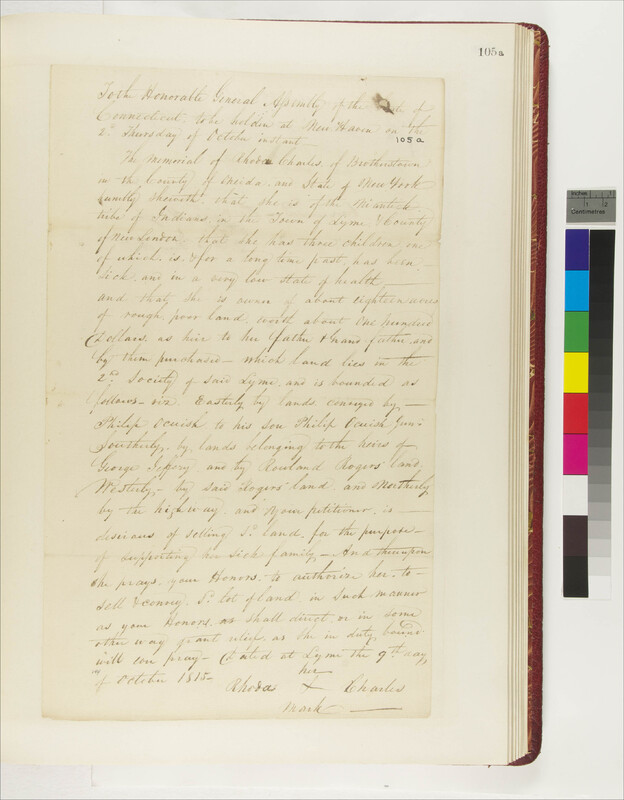 105a
To the Honorable General Assembly of the State of
Connecticut, to be holden at New Haven on the
2d. Thursday of October instant
105a
The Memorial of Rhoda Charles of Brotherstown
in the County of Oneida and State of New York
humbly sheweth, that she is of the Niantick
tribe of Indians, in the Town of Lyme & County
of New London, that she has three children, one
of which is & for a long time past, has been
sick, and in a very low state of health,
and that she is owner of about eighteen acres
of rough poor land, worth about One hundred
Dollars, as heir to her father & Grandfather, and
by them purchased — which land lies in the
2d. Society of said Lyme, and is bounded as
follows — viz. Easterly, by lands conveyed by —
Philip Ocuish to his son Philip Ocuish Junr.
Southerly, by lands belonging to the heirs of
George Jeffery, and by Rowland Rogers' land,
Westerly, — by said Rogers' land and Northerly
by the highway, and your petitioner, is —
desirous of selling Sd. land, for the purpose —
of supporting her sick family, — And thereupon
she prays, your Honors, to authorize her, to —
sell & convey, Sd. lot of land in such manner
as your Honors, shall direct, or in some
other way grant relief, as she in duty bound
will ever pray — Dated at Lyme the 9th day
of October 1815 —
her
Rhoda + Charles
mark
Inches
1
2
Centimetres